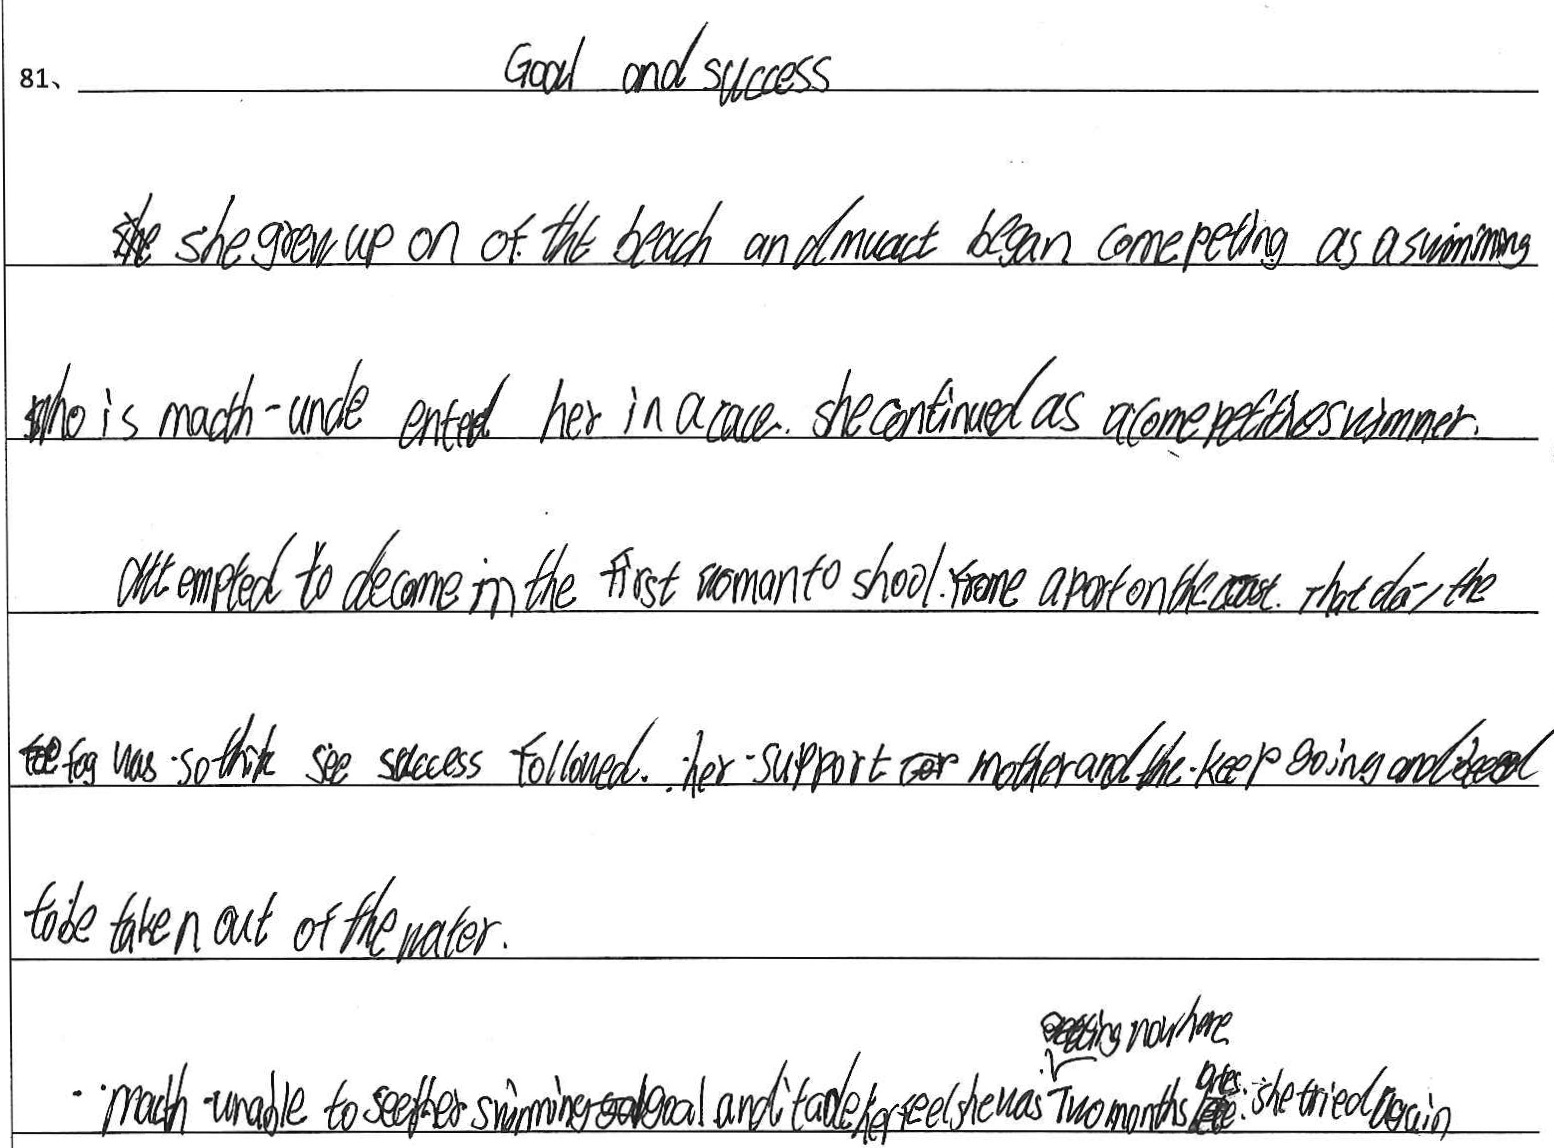 81、 Goal and success
she grew up on of the beach and muact began comepeting as a swimming
who is macth-unde enterd her in a race. she continued as a comepetitive swimmer.
attempted to decome in the first woman to shool. From a port on the coast. That day the
fog was so thik see success followed. her support mother and the keep going and
to be taken out of the water.
getting nowhere
macth unable to see her swimming goal and it made her feel she was Two months later. she tried again